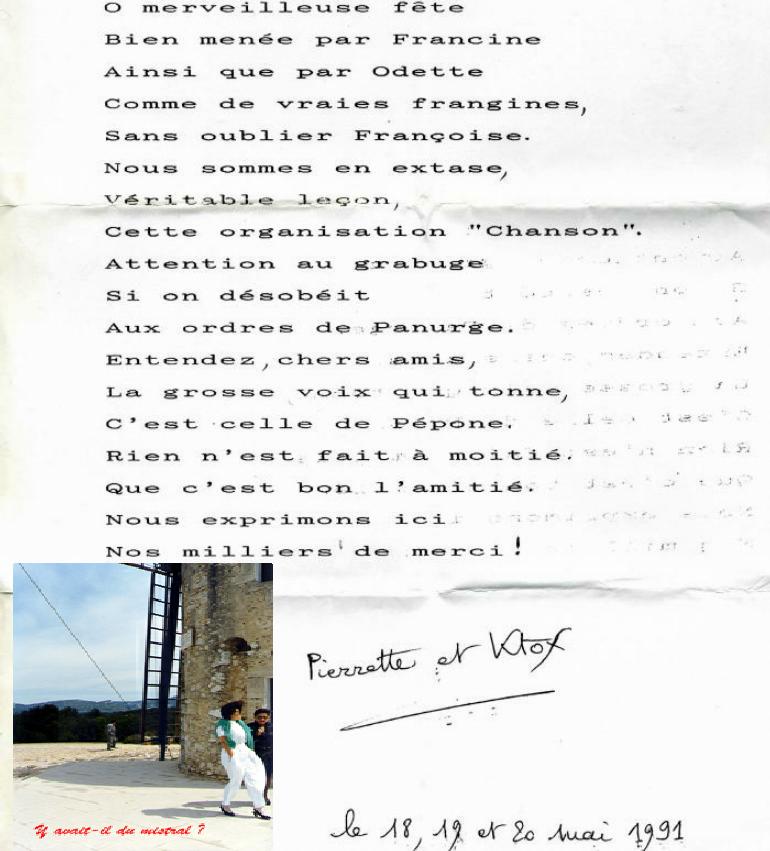 O merveilleuse fête
Bien menée par Francine
Ainsi que par Odette
Comme de vraies frangines,
Sans oublier Françoise.
Nous sommes en extase,
Véritable leçon,
Cette organisation "Chanson".
Attention au grabuge
Si on désobéit
Aux ordres de Panurge.
Entendez,chers amis,
La grosse voix qui tonne,
C'est celle de Pépone.
Rien n'est fait à moitié.
Que c'est bon l'amitié.
Nous exprimons ici
Nos milliers de merci!
Pierrette et Ktox
Y avait-il du mistral ?
le 18, 19 et 20 mai 1991